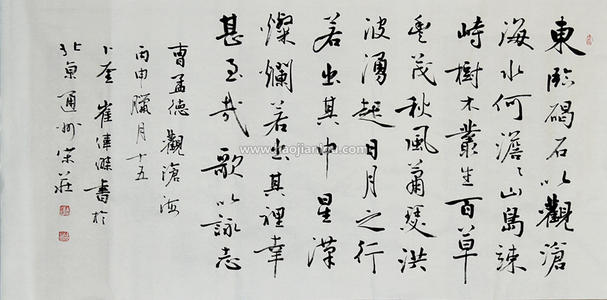 東臨碣石以觀滄
海水何澹々山島竦
峙樹木叢生百草
豐茂秋風蕭瑟洪
波湧起日月之行
若出其中星漢
燦爛若出其裡幸
甚至哉歌以詠志
曹孟德觀滄海
丙申臘月十五
卜奎崔書於
北京通州宋莊